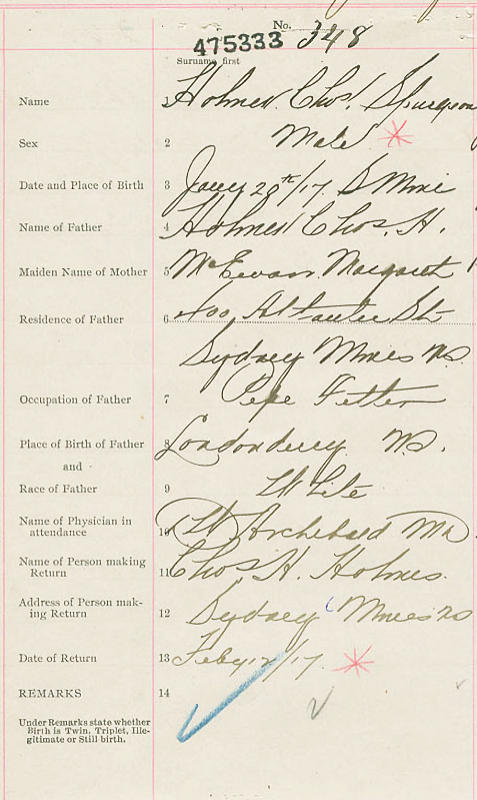 No. 348
475333
Surname first
Name 1 Holmes Chos. Spurgeon
Sex 2 Male
Date and Place of Birth 3 Jany 20th/17. S Mines
Name of Father 4 Holmes Chos. H.
Maiden Name of Mother 5 McEwan Margaret
Residence of Father 6 400 Atlantic St
Sydney Mines N.S.
Occupation of Father 7 Pipe Fitter
Place of Birth of Father 8 Londonderry N.S.
and
Race of Father 9 White
Name of Physician in
attendance 10 Archibald
Name of Person making
Return 11 Chos. H. Holmes.
Address of Person mak-
ing Return 12 Sydney Mines NS
Date of Return 13 Feby 12/17.
REMARKS 14
Under Remarks state whether
Birth is Twin, Triplet, Ille-
gitimate or Still birth.